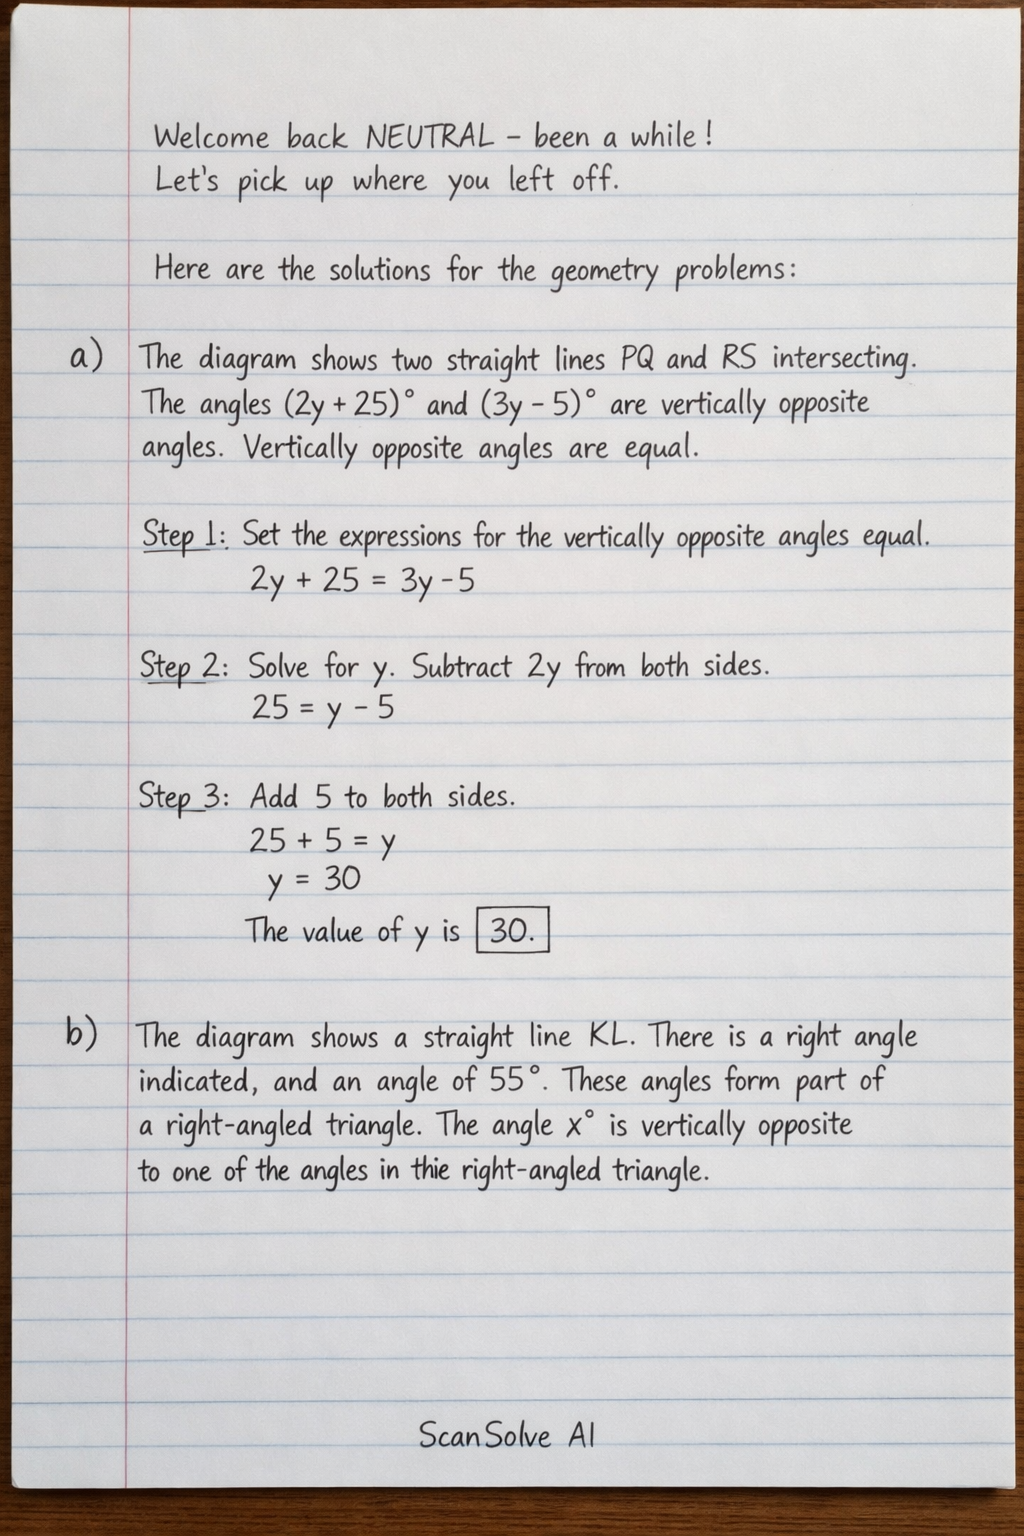 Welcome back NEUTRAL – been a while!
Let's pick up where you left off.
Here are the solutions for the geometry problems:
a) The diagram shows two straight lines PQ and RS intersecting.
The angles (2y + 25)° and (3y – 5)° are vertically opposite
angles. Vertically opposite angles are equal.
Step 1: Set the expressions for the vertically opposite angles equal.
2y + 25 = 3y – 5
Step 2: Solve for y. Subtract 2y from both sides.
25 = y – 5
Step 3: Add 5 to both sides.
25 + 5 = y
y = 30
The value of y is 30.
b) The diagram shows a straight line KL. There is a right angle
indicated, and an angle of 55°. These angles form part of
a right-angled triangle. The angle x° is vertically opposite
to one of the angles in thie right-angled triangle.
ScanSolve AI